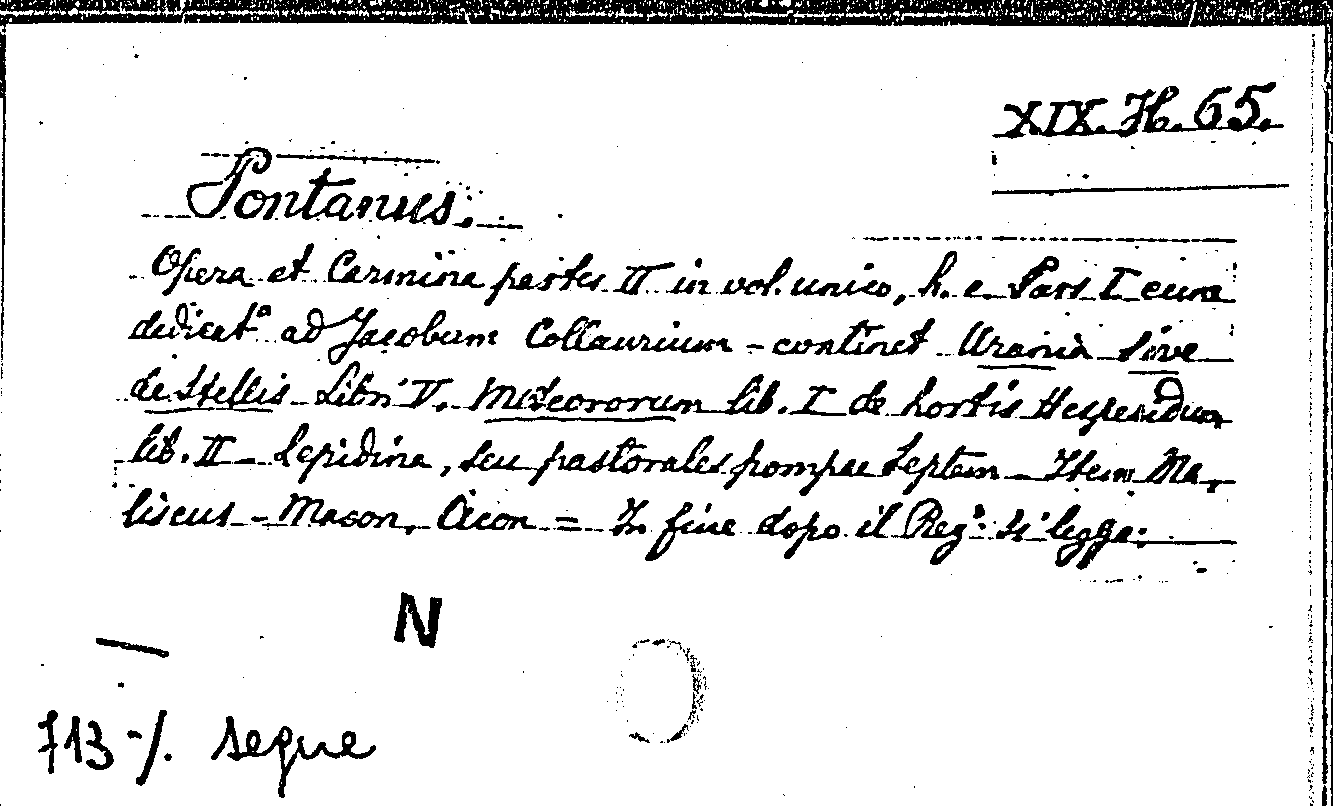 XIX. H. 65.
Pontanus.
Opera et Carmina partes II in vol. unico, h. e. Pars I cum
dedicatᵒ ad Jacobum Collaurium - continet Urania sive
de Stellis Libri V. Meteororum lib. I de hortis Hesperidum
lib. II - Lepidina, seu pastorales pompae septem - Item Me-
liseus - Maeon, Acon = In fine dopo il Regᵒ: si legge:
N
713 -/. segue